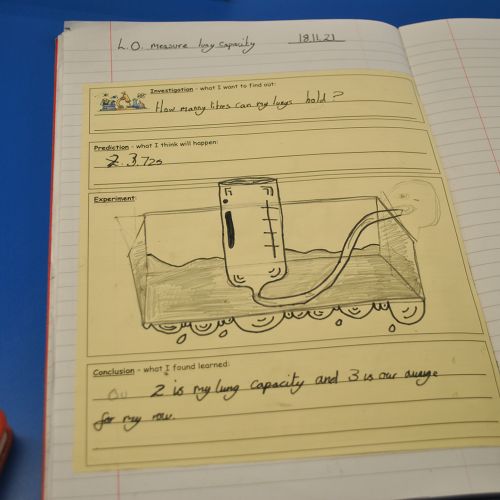 L.O. measure lung capacity
18.11.21
Investigation - what I want to find out:
How manny litres can my lungs hold?
Prediction - what I think will happen:
2. 3.725
Experiment
Conclusion - what I found learned:
2 is my lung capacity and 3 is our avrage
for my row.